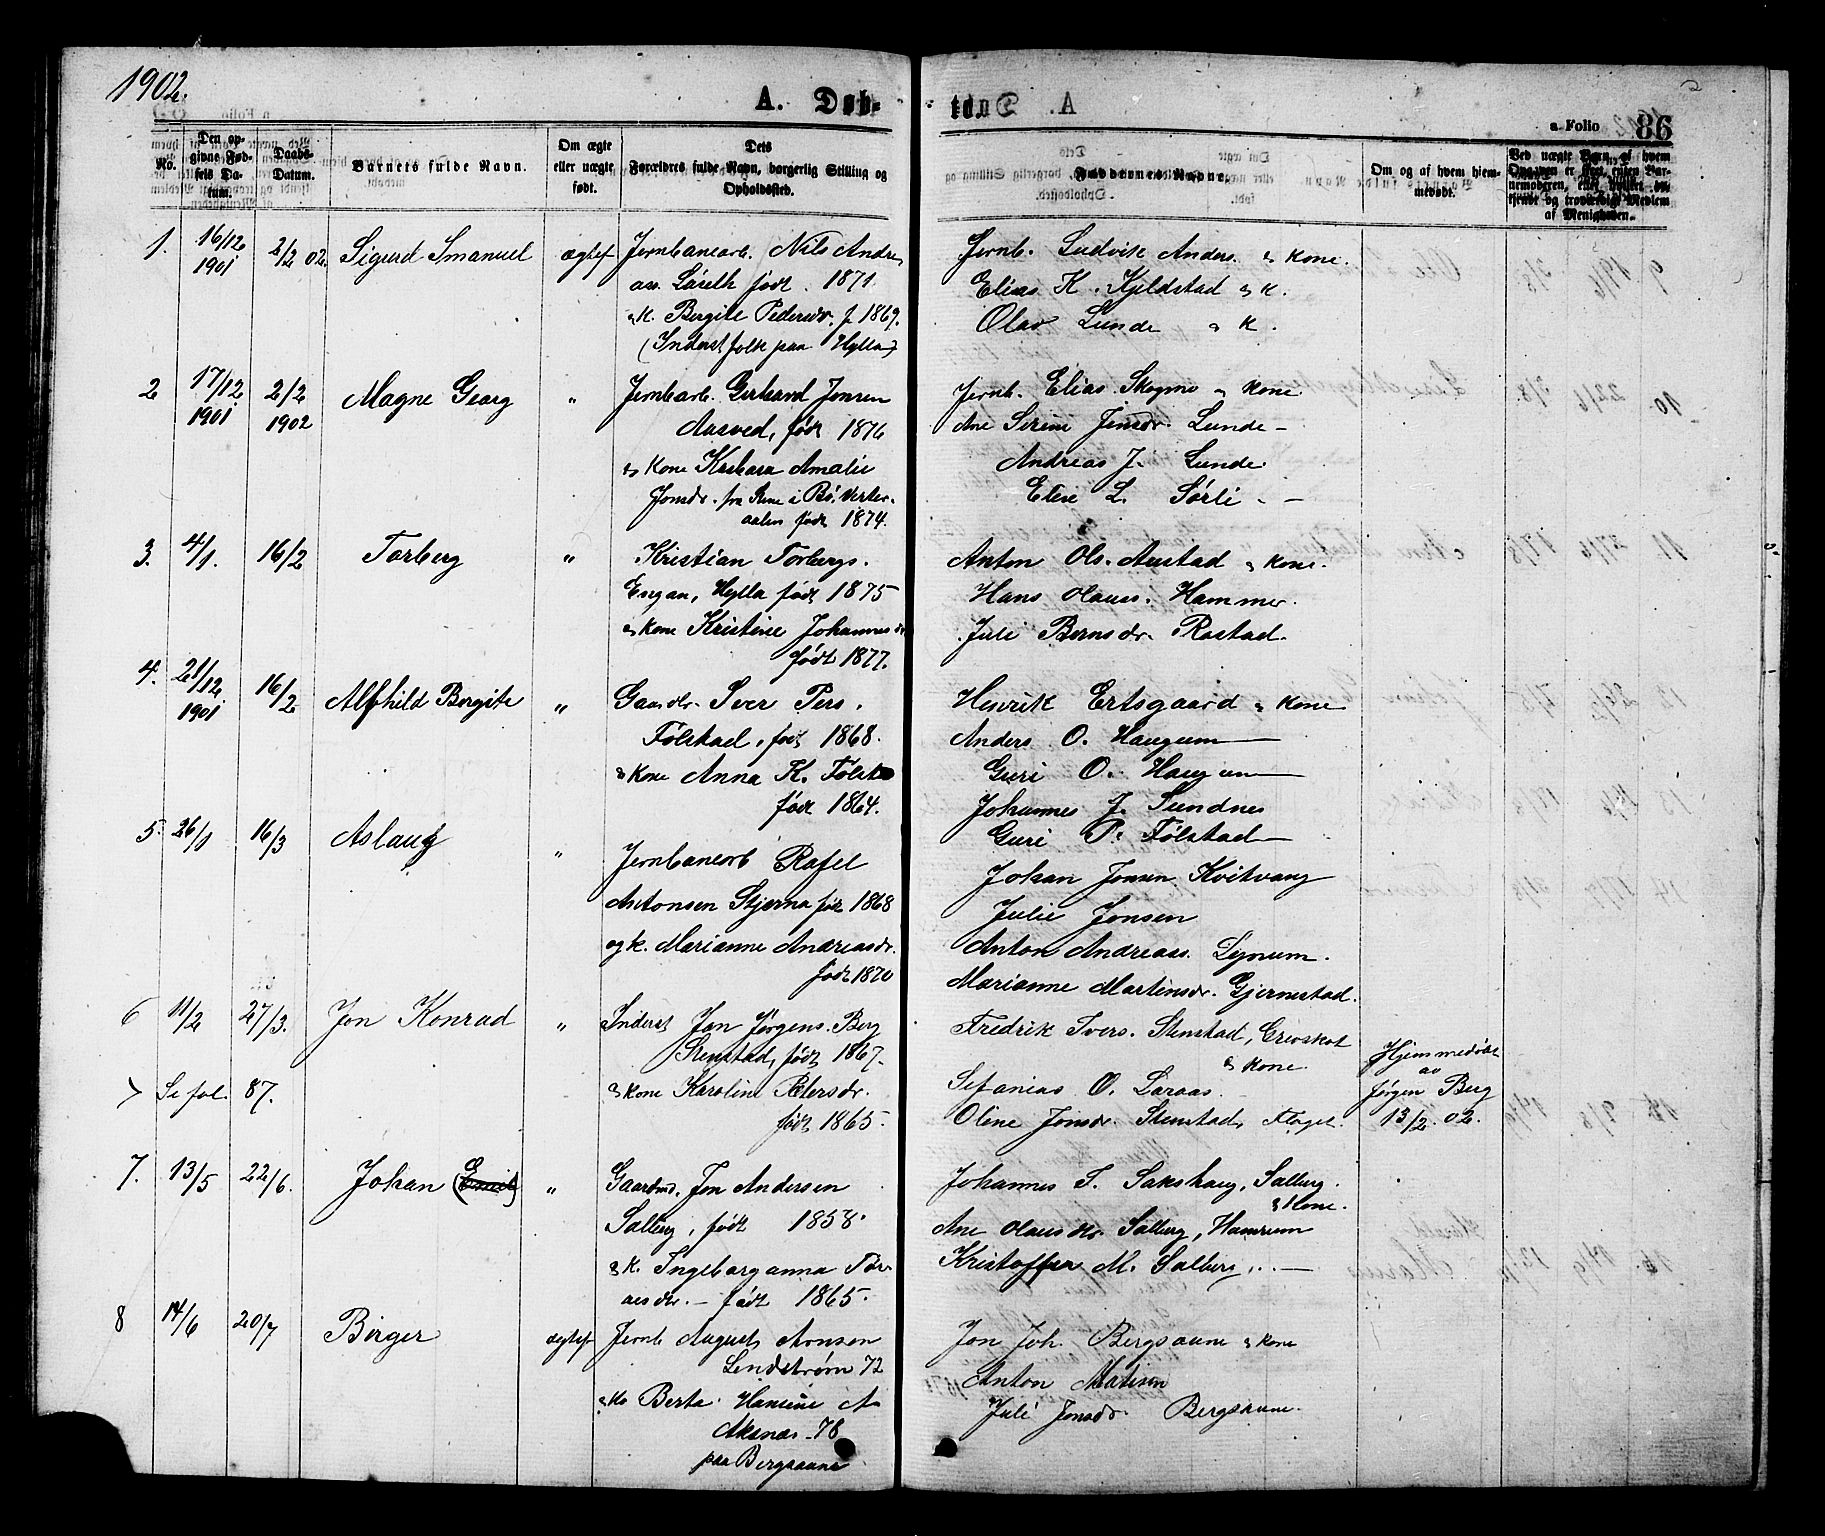 1902.
A. Døb-
te.
a Folio 86
No.
Den op-
givne Fød-
sels Da-
tum.
Daabs-
Datum.
Barnets fulde Navn.
Om ægte
eller uægte
født.
Dets
Forældres fulde Navn, borgerlig Stilling og
Opholdssted.
Faddernes Navne.
Om og af hvem hjem-
medøbt.
Ved uægte Børn, af hvem
Opgaven er skeet, enten Bar-
nemoderen, eller hvilket be-
kjendt og troværdigt Medlem
af Menigheden.
1. 16/12 1901 2/2 02. Sigurd Imanuel ægtef
Jernbanearb. Nils Andre
ass. født 1871.
& k. Bergite Pedersdr. f. 1869.
(Inderstfolk paa Hylla)
Jernb. Ludvik Anders. & kone.
Elias K. Kjeldstad & k.
Olav Lunde & k.
2 17/12 1901 2/2 1902 Magne Georg "
Jernbarb. Gerhard Jonsen
Aasved, født 1876
& kone Amalie
Jonsdr. fra i Bø. Vester-
aalen født 1874.
Jernb. Elias Skogmo & kone
Ane Serine Jensdr. Lunde -
Andreas J. Lunde
Eline L. Sørli -
3. 4/1. 16/2 Torberg "
Kristian Torbergs.
Engan, Hylla født 1875
& kone Kristine Johannesdr
født 1877.
Anton Ols. Austad & kone.
Hans Olauss. Hammer.
Juli Bernsdr. Rostad.
4. 21/12 1901 16/2 Alfhild Bergite "
Gaardbr. Iver Pers.
Følstad, født 1868.
& kone Anna K. Følst
født 1864.
Henrik Ertsgaard & kone
Anders O. Haugum
Guri O. Haugum
Johannes J. Sundnes
Guri P. Følstad
5. 26/1 16/3 Aslaug "
Jernbanearb Rafel
Antonsen Stjerna født 1868
og k. Marianne Andreasdr.
født 1870
Johan Jonsen Kvitvang
Julie Jonsen
Anton Andreass. Lynum.
Marianne Martinsdr. Gjermstad.
6 11/2 27/3. Jon Konrad "
Inderst Jon Jørgens. Berg
Stenstad, født 1867.
& kone Karoline Petersdr.
født 1865.
Fredrik Ivers. Stenstad,
& kone
Sefanias O. Laraas.
Oline Jonsdr. Stenstad,
Hjemmedøbt
av
Jørgen Berg
13/2. 02.
7 Se fol. 87.
7. 13/5 22/6. Johan (Emil) "
Gaardmd. Jon Andersen
Salberg, født 1858.
& k. Ingeborganna Tor
aesdr. - født 1865.
Johannes T. Sakshaug, Salberg.
& kone.
Ane Olausdtr. Salberg, Hamrum
Kristoffer M. Salberg, " -
8 14/6 20/7 Birger ægtef
Jernb August Arnsen
Lindstrøm 72
& ko Berta Hansine A
Aksnæs 78
paa Bergsaune
Jon Joh. Bergsaune & kone
Anton Matisen
Juli Jonsdr. Bergsaune.